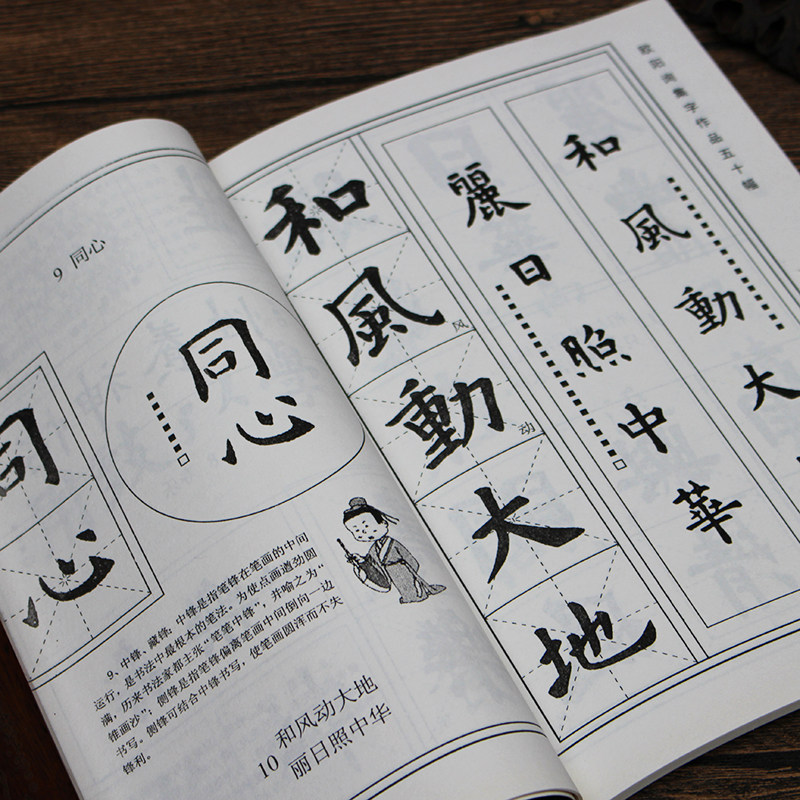 9 同心
同心
同心
9、中锋、藏锋 中锋是指笔锋在笔画的中间
运行，是书法中最根本的笔法。为使点画遒劲圆
满，历来书法家都主张“笔笔中锋”，并喻之为“
锥画沙”；侧锋是指笔锋偏离笔画中间倒向一边
书写。侧锋可结合中锋书写，使笔画圆浑而不失
锋利。
10 和风动大地
丽日照中华
欧阳询集字作品五十幅
和風動大
麗日照中華
和風動大地
风
动